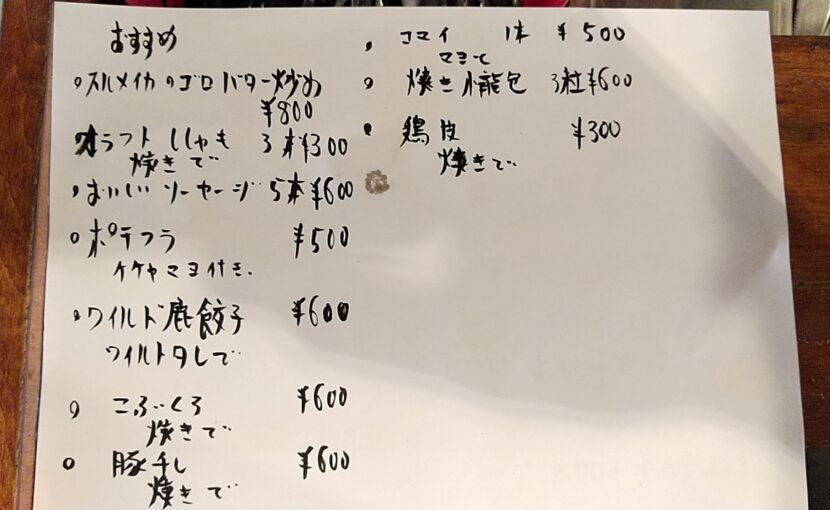 おすすめ
・スルメイカのゴロバター炒め
¥800
オラフトししゃも 3本¥300
焼きで
・おいしいソーセージ 5本¥600
・ポテフラ ¥500
ケチャマヨ付き.
・ワイルド鹿餃子 ¥600
ワイルドタレで
・こぶくろ ¥600
焼きで
・豚千し ¥600
焼きで
・コマイ 1本 ¥500
マヨで
・焼き小龍包 3粒¥600
・鶏皮 ¥300
焼きで